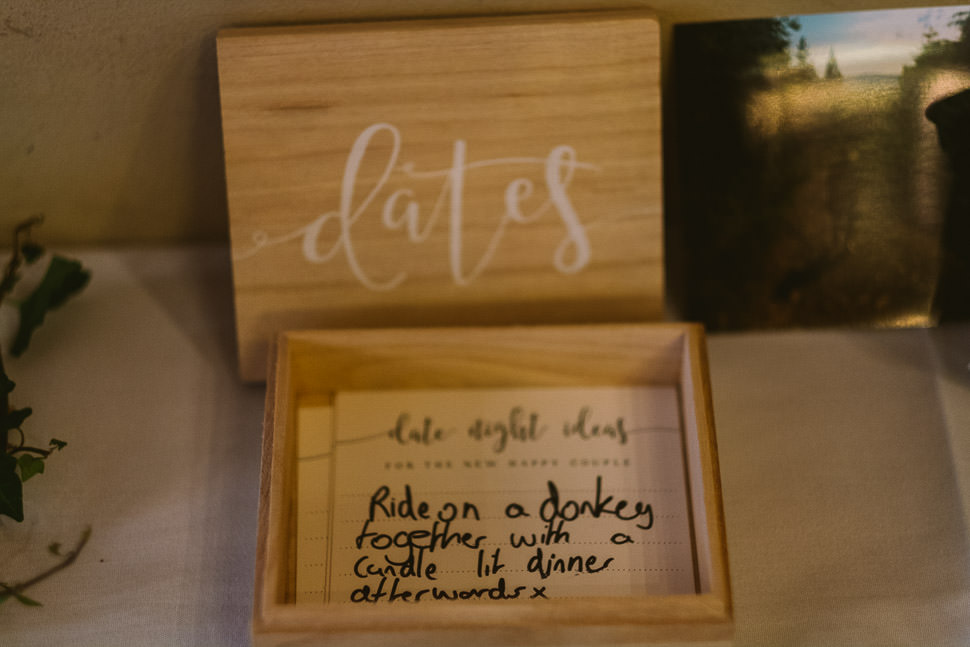 dates
date night ideas
FOR THE NEW HAPPY COUPLE
Ride on a donkey
together with a
candle lit dinner
afterwards x